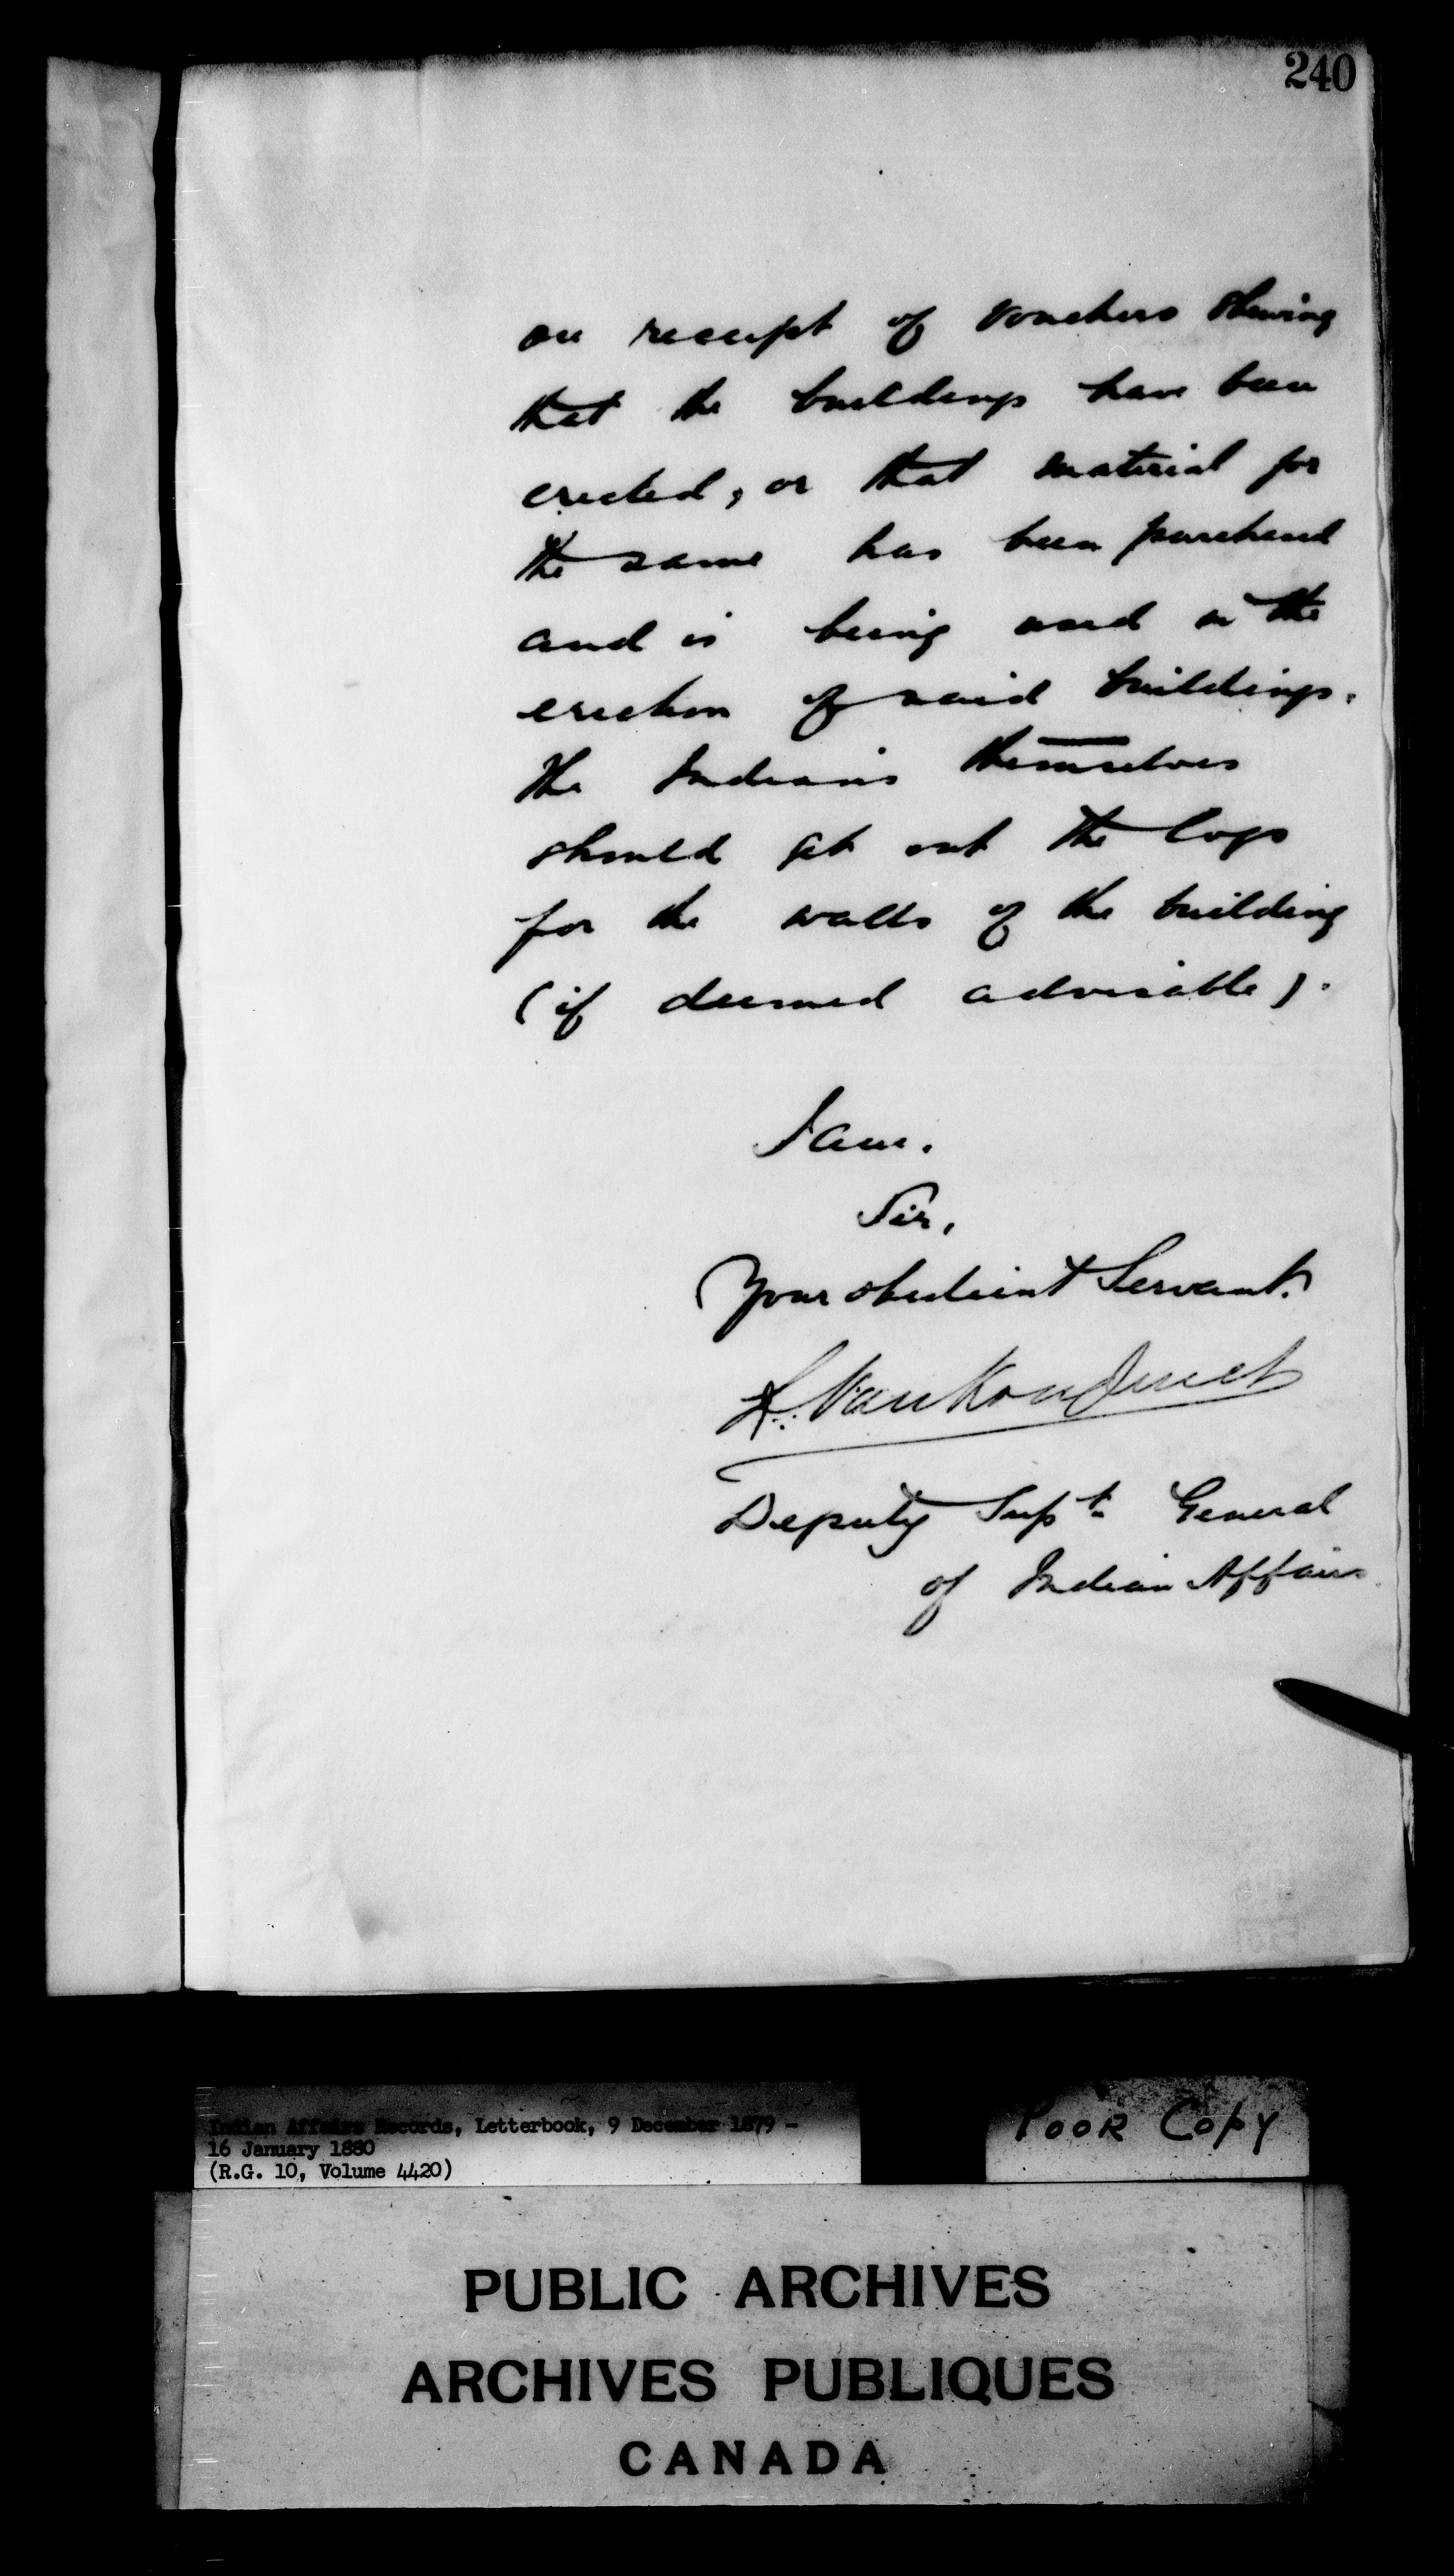 240
on receipt of vouchers shewing
that the buildings have been
erected, or that material for
the same has been purchased
and is being used in the
erection of said buildings.
The Indians themselves
should get out the logs
for the walls of the building
(if deemed advisable).
I am.
Sir,
Your obedient Servant.
L. VanKoughnet
Deputy Supt. General
of Indian Affairs
Indian Affairs Records, Letterbook, 9 December 1879 -
16 January 1880
(R.G. 10, Volume 4420)
POOR COPY
PUBLIC ARCHIVES
ARCHIVES PUBLIQUES
CANADA